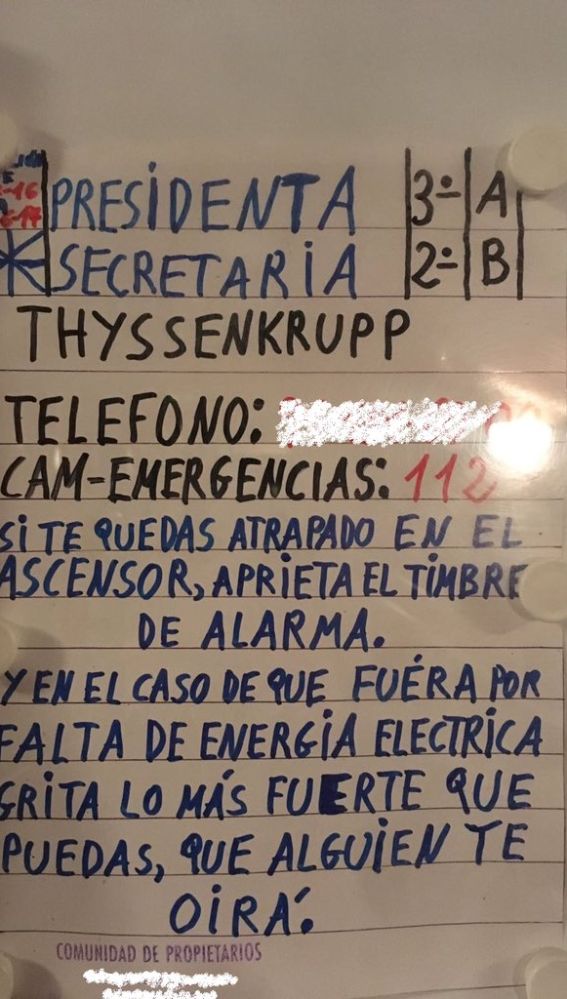 -16
PRESIDENTA 3º A
SECRETARIA 2º B
THYSSENKRUPP
TELEFONO:
CAM-EMERGENCIAS: 112
SI TE QUEDAS ATRAPADO EN EL
ASCENSOR, APRIETA EL TIMBRE
DE ALARMA.
Y EN EL CASO DE QUE FUÉRA POR
FALTA DE ENERGIA ELECTRICA
GRITA LO MÁS FUERTE QUE
PUEDAS, QUE ALGUIEN TE
OIRÁ.
COMUNIDAD DE PROPIETARIOS